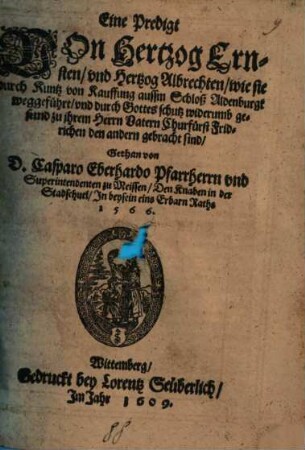 Eine Predigt
VOn Hertzog Ern-
sten/ vnd Hertzog Albrechten/ wie sie
durch Kuntz von Kauffung aussm Schloß Aldenburgk
weggeführt/ vnd durch Gottes schutz widerumb ge-
sund zu ihrem Herrn Vatern Churfürst Frid-
richen den andern gebracht sind/
Gethan von
D. Casparo Eberhardo Pfarrherrn vnd
Superintendenten zu Meissen/ Den Knaben in der
Stadschul/ In beysein eins Erbarn Raths
1566.
Wittemberg/
Gedruckt bey Lorentz Seüberlich/
Im Jahr 1609.
88